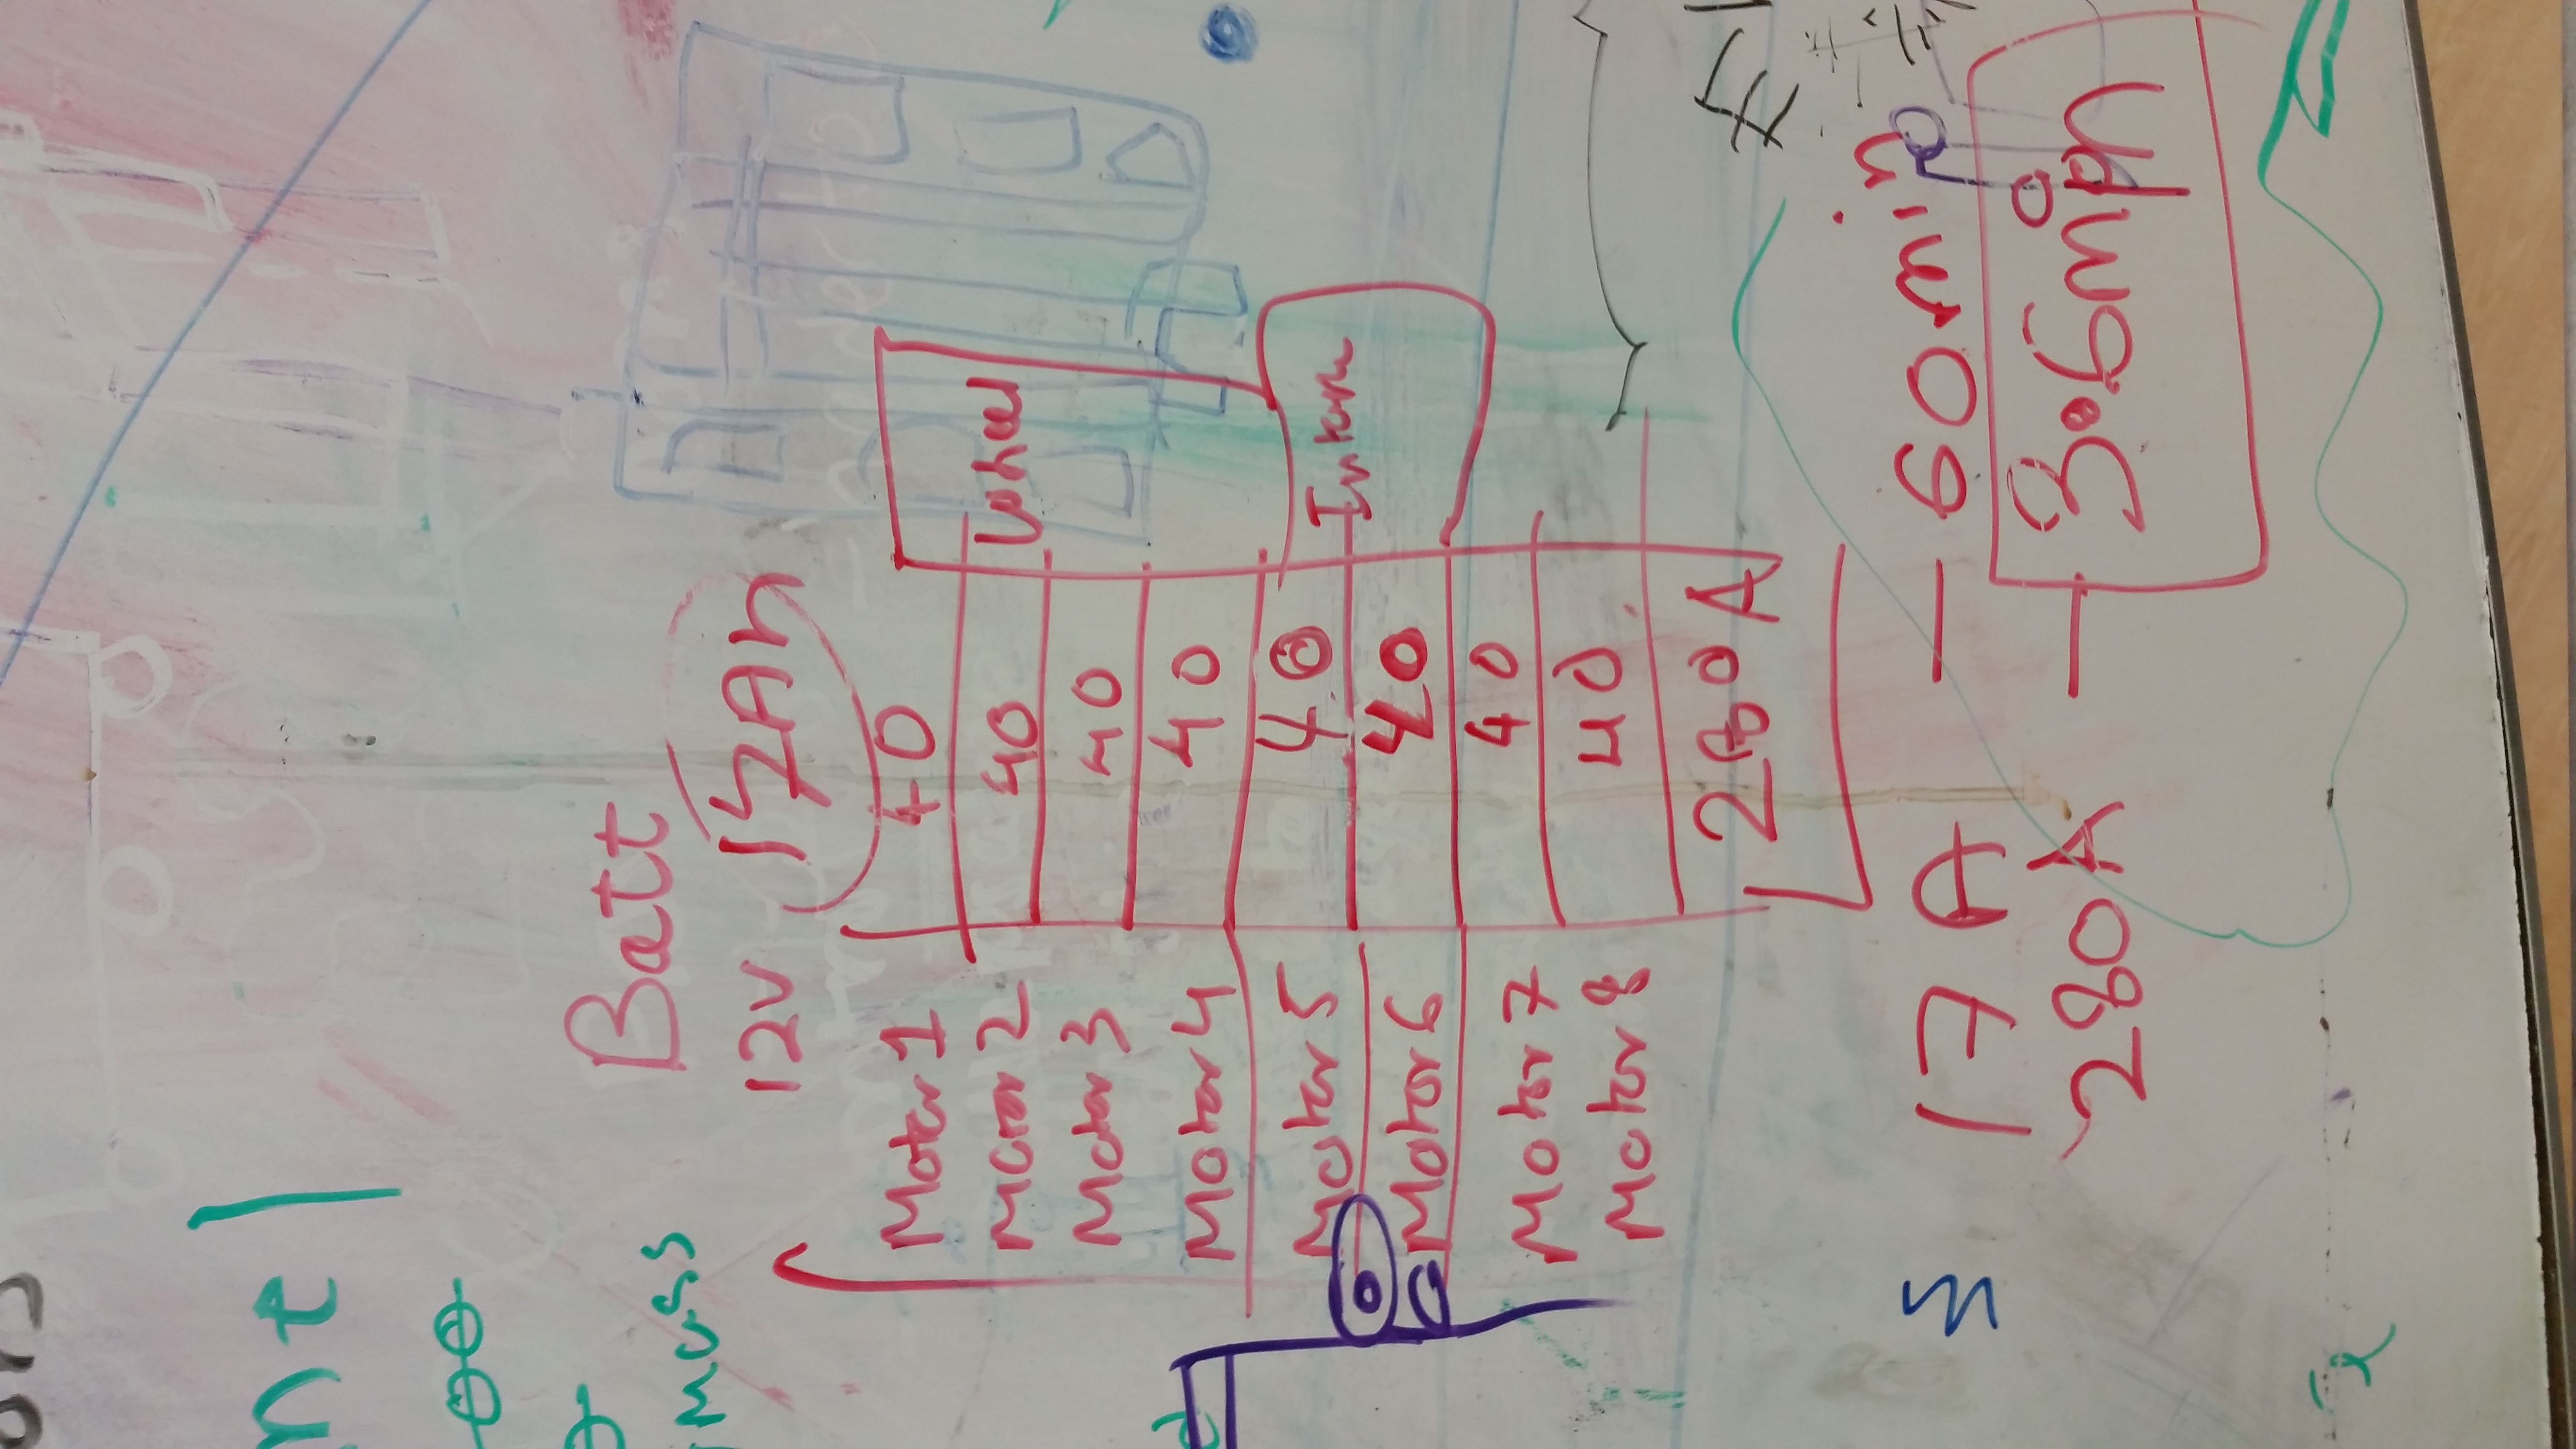 nt
mass
Batt
12V 17Ah
Motor 1 40
Motor 2 40
Wheel
Motor 3 40
Motor 4 40
Motor 5 40
Motor 6 40
Motor 7 40
Motor 8 40
280A
17 A — 60 min
280A — 3.6 min